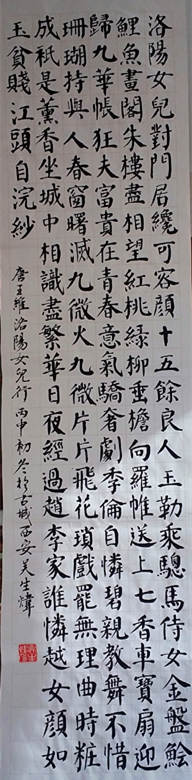 洛陽女兒對門居纔可容顏十五餘良人玉勒乘驄馬侍女金盤鱠
鯉魚畫閣朱樓盡相望紅桃綠柳垂檐向羅帷送上七香車寶扇迎
歸九華帳狂夫富貴在青春意氣驕奢劇季倫自憐碧親教舞不惜
珊瑚持與人春窗曙滅九微火九微片片飛花瑣戲罷無理曲時粧
成衹是薰香坐城中相識盡繁華日夜經過趙李家誰憐越女顏如
玉貧賤江頭自浣紗 唐王維洛陽女兒行 丙申初冬於古城西安吳生煒